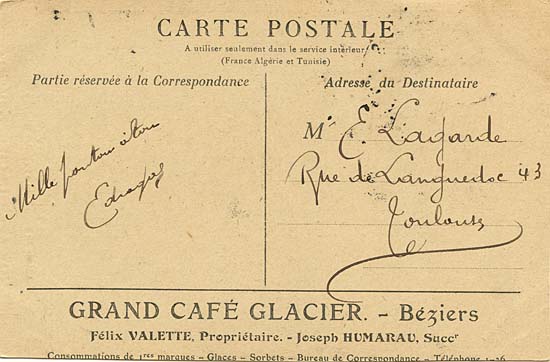 CARTE POSTALE
A utiliser seulement dans le service intérieur
(France Algérie et Tunisie)
Partie réservée à la Correspondance
Adresse du Destinataire
Mille
M E. Lagarde
Rue de Languedoc 43
Toulouse
GRAND CAFÉ GLACIER. - Béziers
Félix VALETTE, Propriétaire. - Joseph HUMARAU, Succr
Consommations de 1res marques - Glaces - Sorbets - Bureau de Correspondance - Téléphone